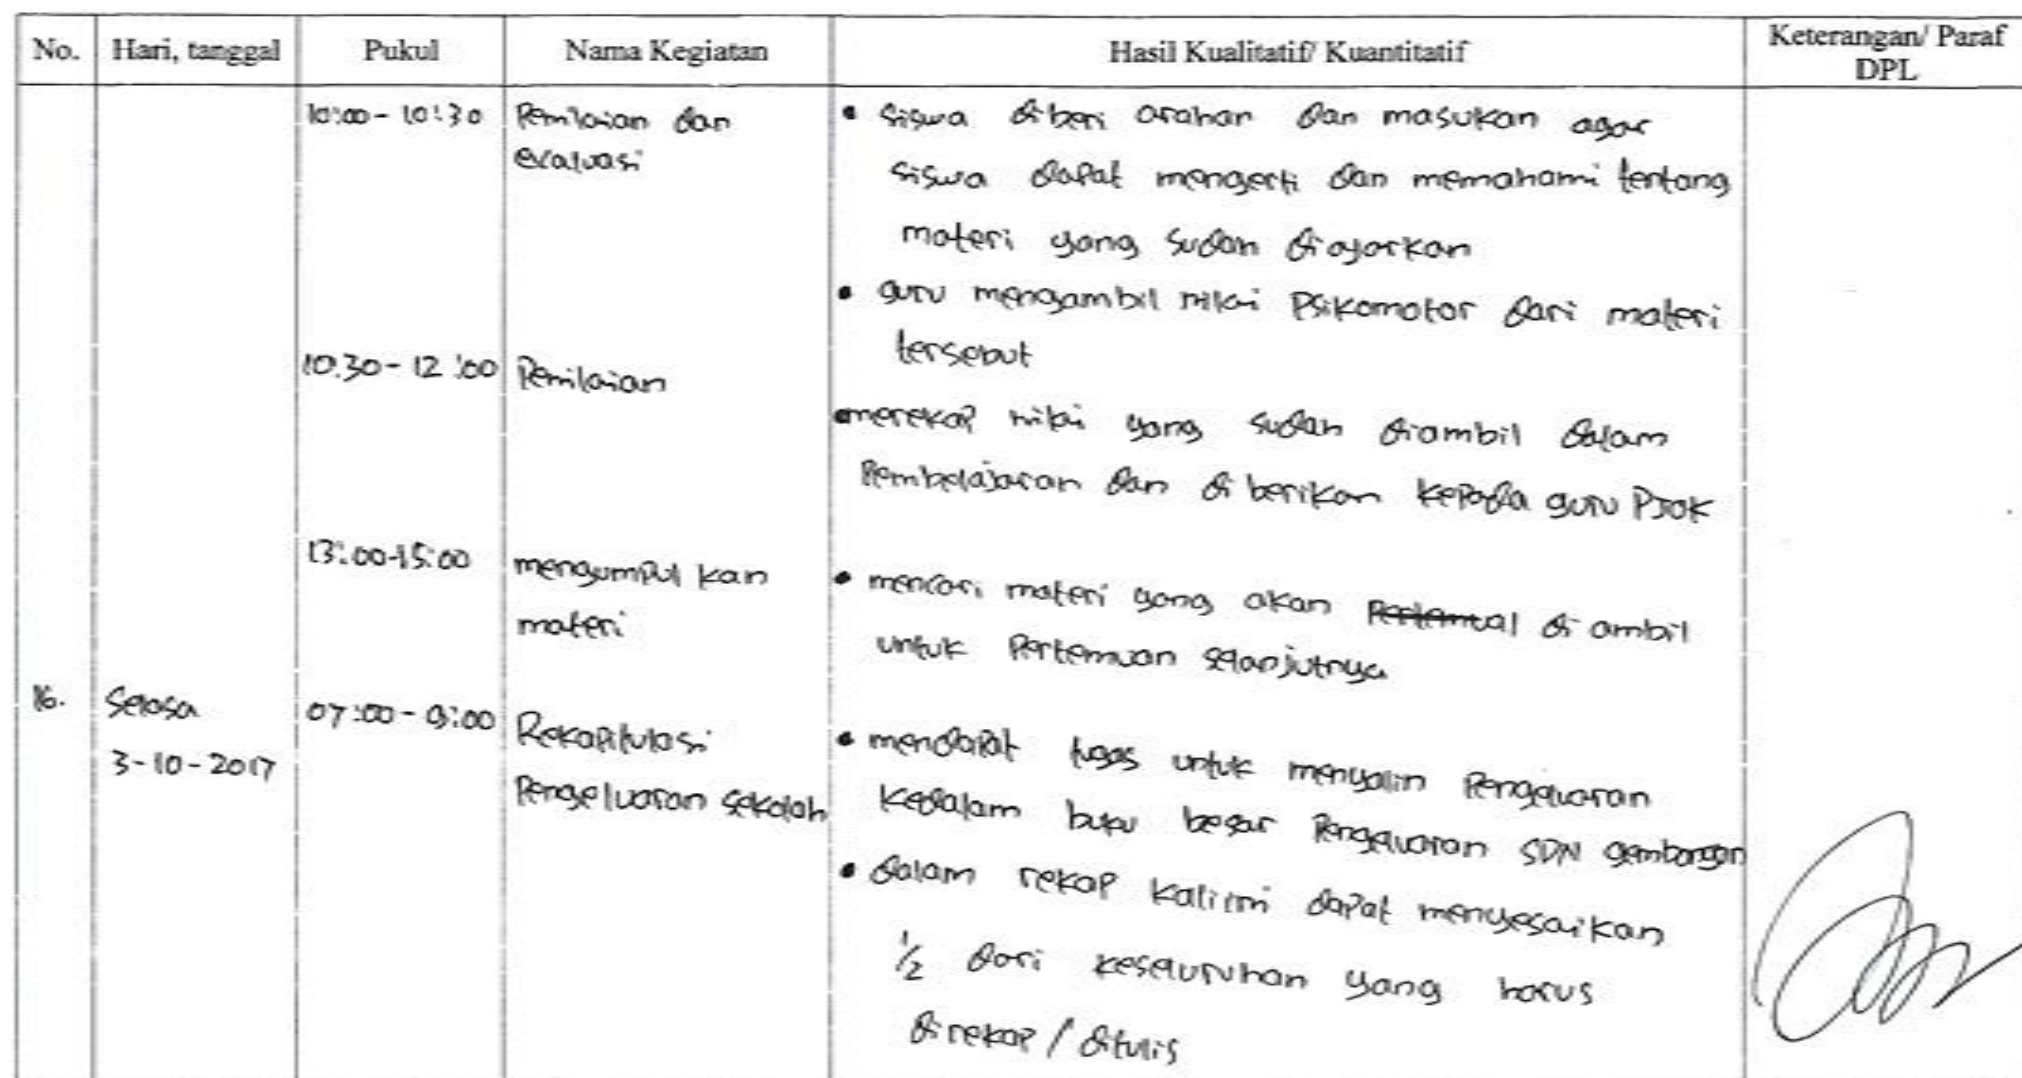 No. Hari, tanggal Pukul Nama Kegiatan Hasil Kualitatif/ Kuantitatif Keterangan/ Paraf DPL
10:00 - 10:30 Penilaian dan evaluasi
• siswa diberi arahan dan masukan agar
siswa dapat mengerti dan memahami tentang
materi yang sudah diajarkan
• guru mengambil nilai Psikomotor dari materi
tersebut
10.30 - 12:00 Penilaian
• merekap nilai yang sudah diambil dalam
Pembelajaran dan di berikan kepada guru PJOK
13:00-15:00 mengumpul kan
materi
• mencari materi yang akan di ambil
untuk Pertemuan selanjutnya
16. Selasa
3-10-2017
07:00 - 9:00 Rekapitulasi
Pengeluaran sekolah
• mendapat tugas untuk menyalin Pengeluaran
kedalam buku besar Pengeluaran SDN gembongan
• dalam rekap kali ini dapat menyesaikan
1/2 dari keseluruhan yang harus
direkap / ditulis